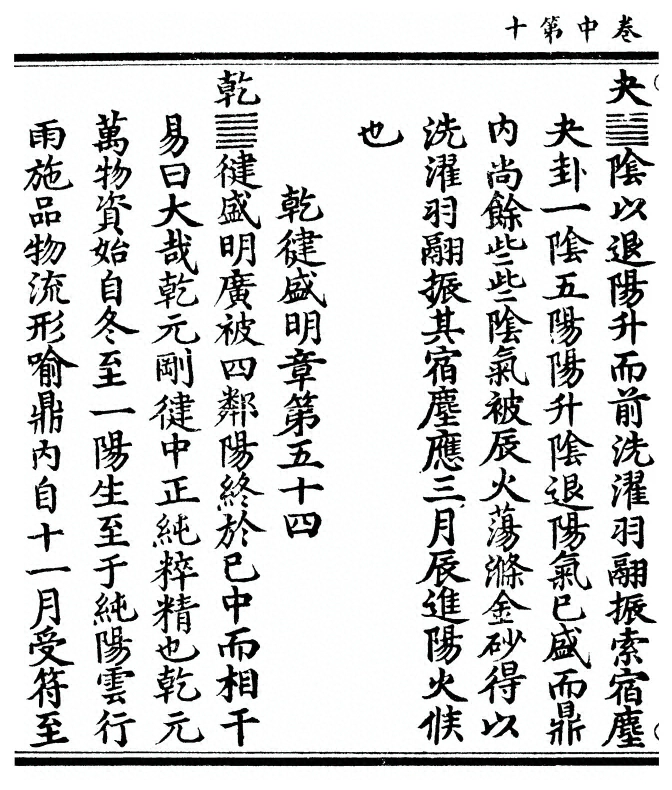 卷中第十
夬䷪陰以退陽升而前洗濯羽翮振索宿塵
夬卦一陰五陽陽升陰退陽氣已盛而鼎
内尚餘些些陰氣被辰火蕩滌金砂得以
洗濯羽翮振其宿塵應三月辰進陽火候
也
乾健盛明章第五十四
乾䷀健盛明廣被四鄰陽終於巳中而相干
易曰大哉乾元剛健中正純粹精也乾元
萬物資始自冬至一陽生至于純陽雲行
雨施品物流形喻鼎内自十一月受符至